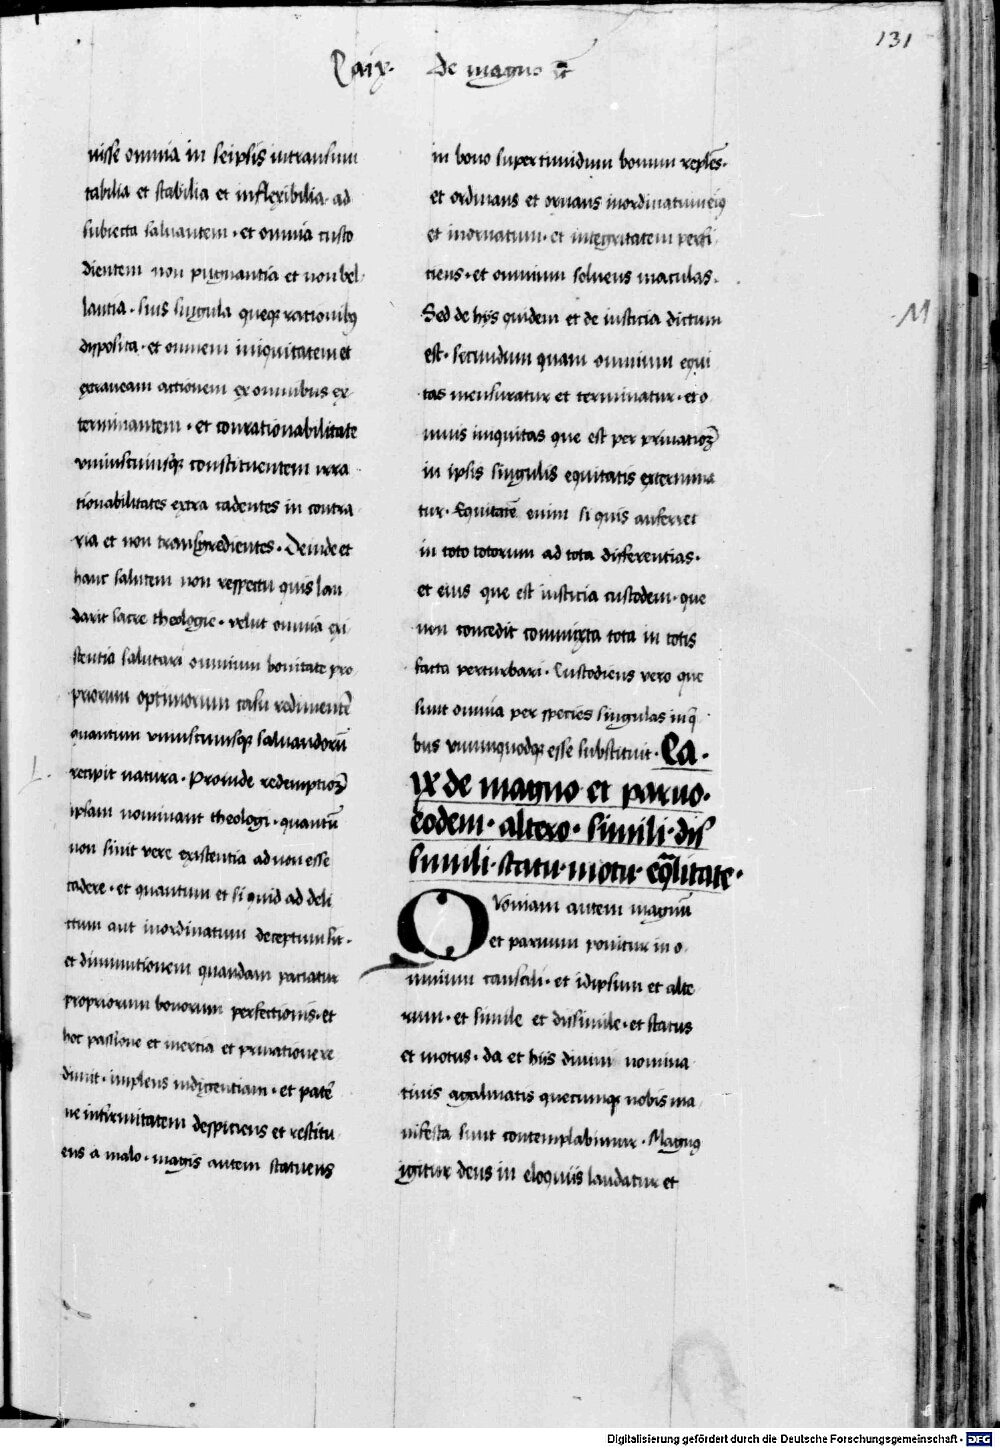 131
Ca ix. de magno et
nisse omnia in seipsis intransmu
tabilia et stabilia et inflexibilia. ad
subiecta saluantem. et omnia custo
dientem non pugnantia et non bel
lantia. suis singula queque rationibus
disposita. et omnem iniquitatem et
extraneam actionem ex omnibus ex
terminantem. et conrationabilitate
vniuscuiusque constituentem irra
tionabilitates extra cadentes in contra
ria et non transgredientes. Deinde et
hanc salutem non respectu quis lau
darit sacre theologie. velut omnia exi
stentia salutari omnium bonitate pro
priorum optimorum casu redimentē
quantum vniuscuiusque saluandorū
recipit natura. Proinde redemptionē
L.
ipsam nominant theologi. quantū
non sinit vere existentia ad non esse
cadere. et quantum et si quid ad deli
ctum aut inordinatum deceptum sit.
et diminutionem quandam patiatur
propriorum bonorum perfectionis. et
hoc passione et inertia et priuatione re
dimit. implens indigentiam. et pater
ne infirmitatem despiciens et restitu
ens a malo. magis autem statuens
in bono supertimidum bonum replēs.
et ordinans et ornans inordinatum eius
et inornatum. et integritatem perfi
ciens. et omnium soluens maculas.
Sed de hijs quidem et de iusticia dictum
M
est. secundum quam omnium equi
tas mensuratur et terminatur. et o
mnis iniquitas que est per priuationē
in ipsis singulis equitatis extermina
tur. Equitatē enim si quis auferret
in toto totorum ad tota differentias.
et eius que est iusticia custodem. que
non concedit commixta tota in totis
facta perturbari. Custodiens vero que
sunt omnia per species singulas in q̄
bus vnumquodque esse substituit. Ca.
ix de magno et paruo.
eodem. altero. simili. dis
simili. statu. motu. eq̄litate.
Qvoniam autem magnū
et paruum ponitur in o
mnium causali. et idipsum et alte
rum. et simile et dissimile. et status
et motus. da et hiis diuini nomina
tiuis agalmatis quecumque nobis ma
nifesta sunt contemplabimur. Magnus
igitur deus in eloquiis laudatur et
Digitalisierung gefördert durch die Deutsche Forschungsgemeinschaft - DFG